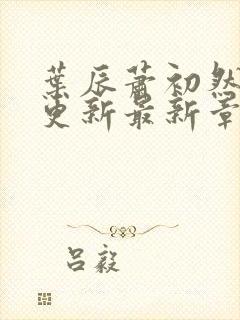 葉辰蕭初然
更新最新章
呂毅